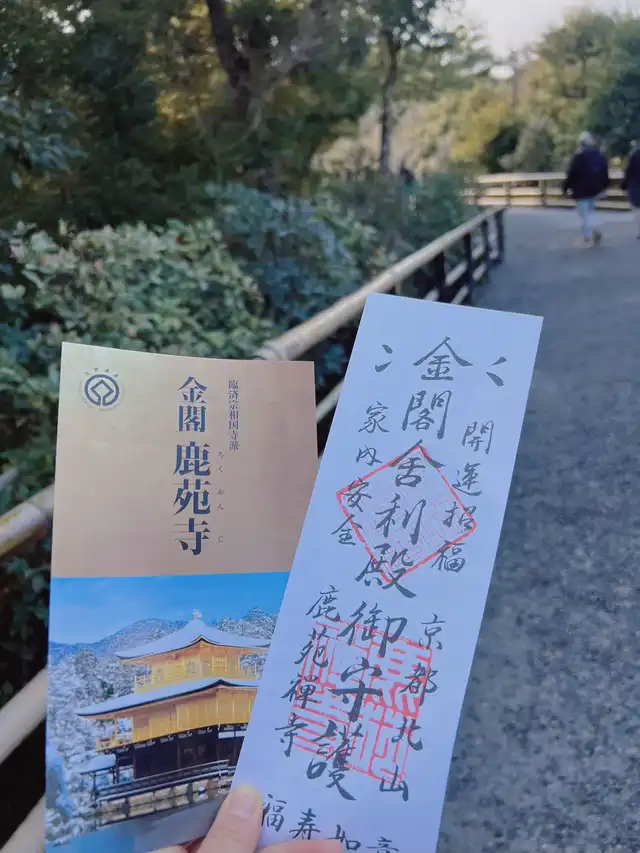 臨済宗相国寺派
金閣 鹿苑寺
ろくおんじ
開運招福
金閣舎利殿御守護
家内安全
京都北山
鹿苑禅寺
福寿如意